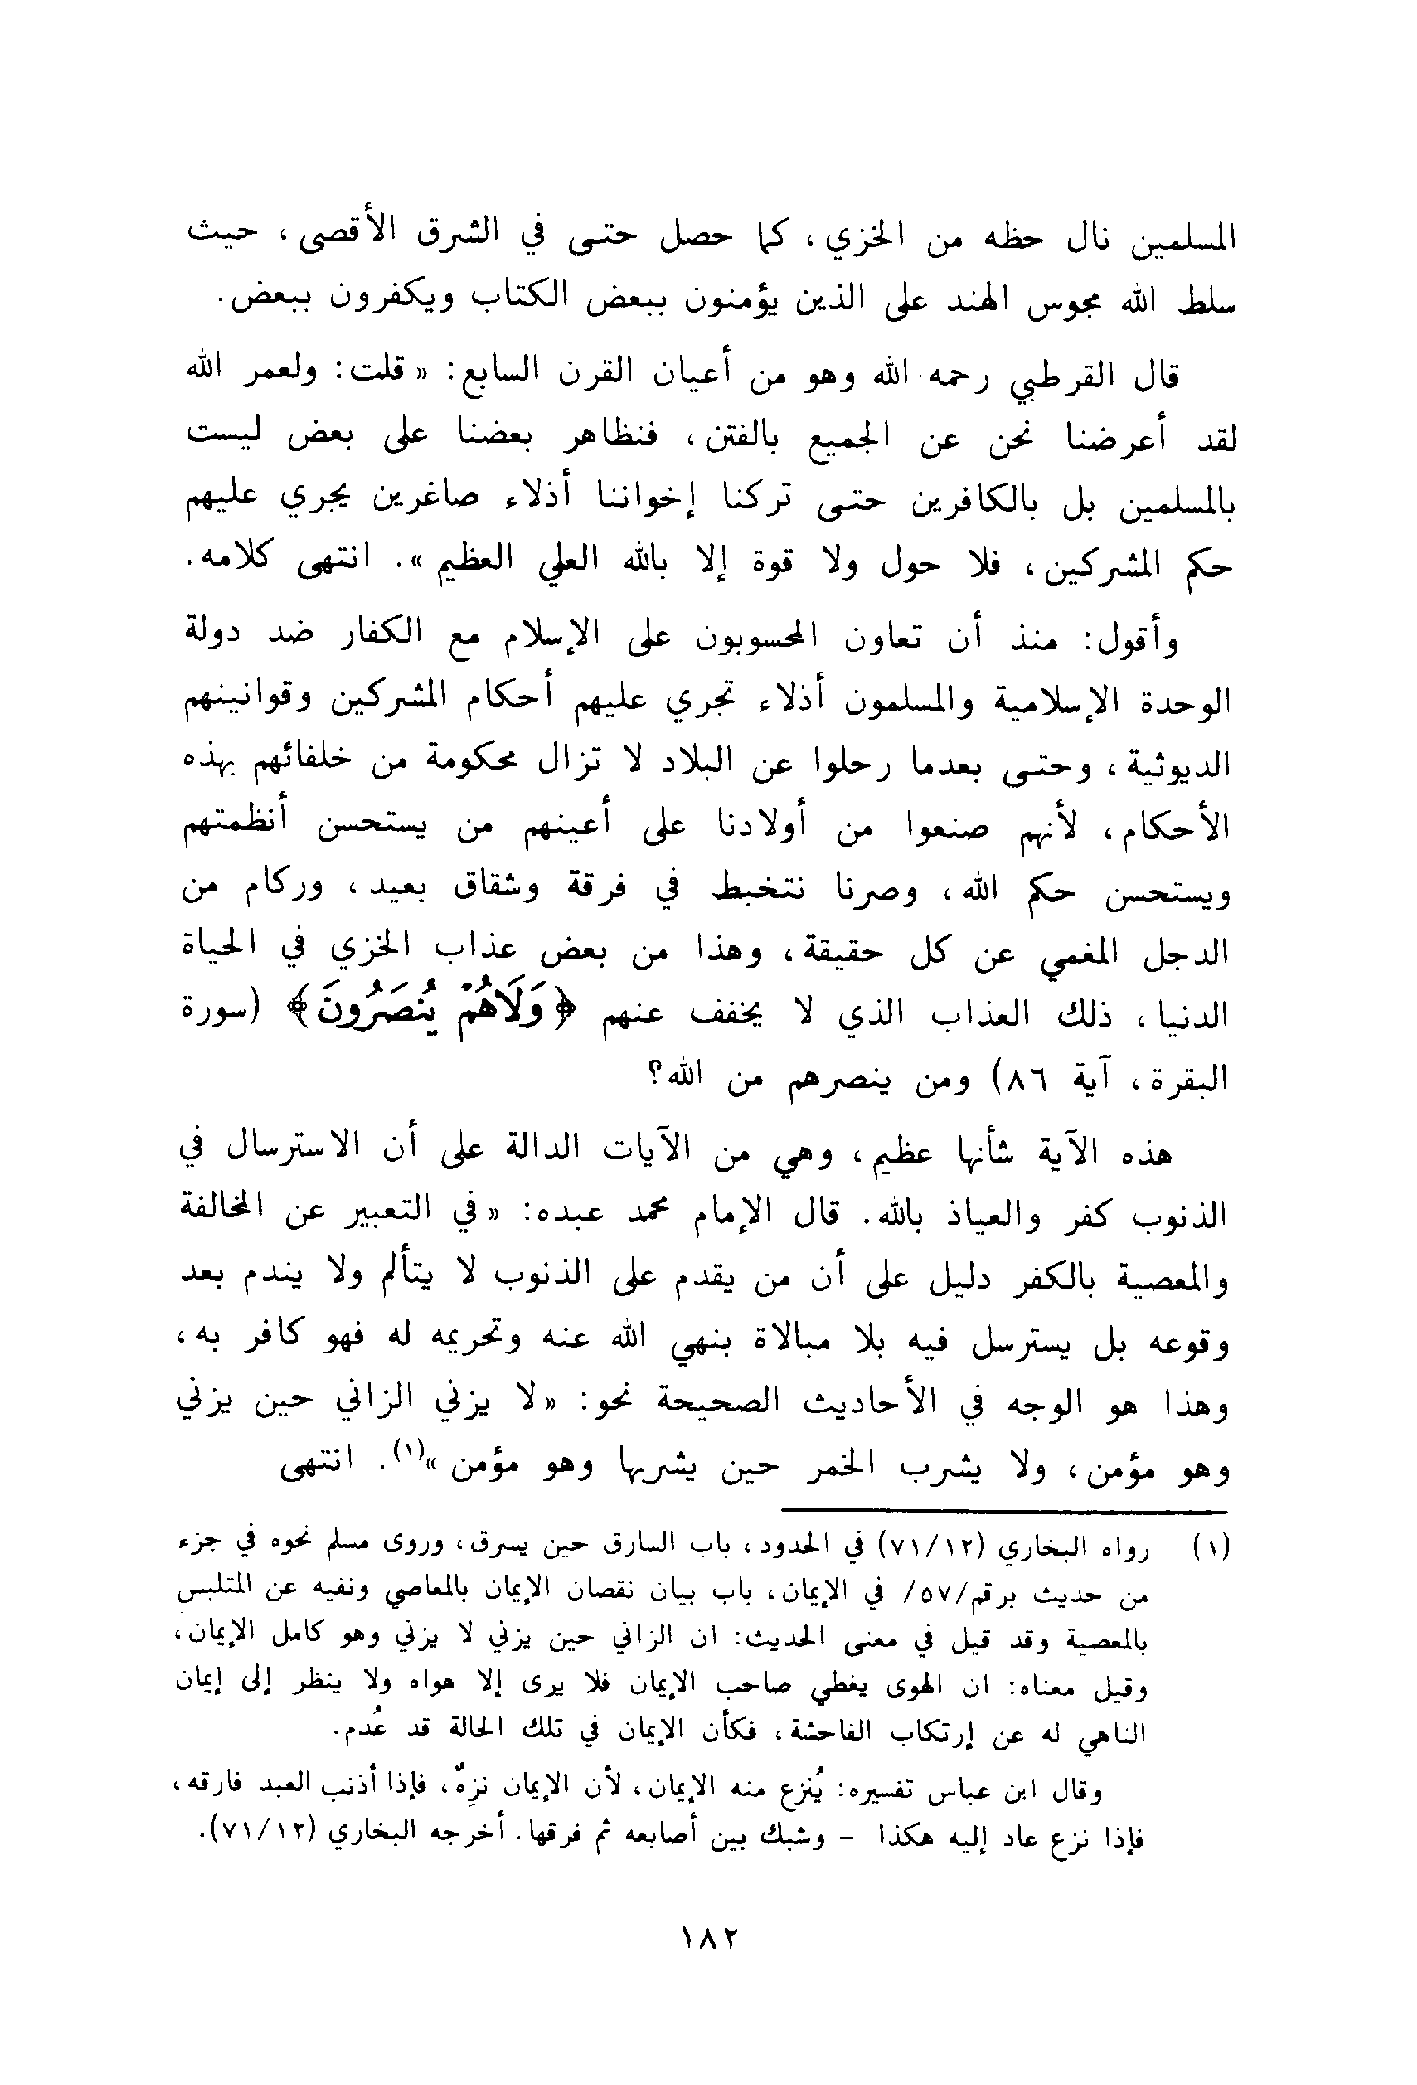 المسلمين نال حظه من الخزي، كما حصل حتى في الشرق الأقصى، حيث
سلط الله مجوس الهند على الذين يؤمنون ببعض الكتاب ويكفرون ببعض.
قال القرطبي رحمه الله وهو من أعيان القرن السابع: « قلت: ولعمر الله
لقد أعرضنا نحن عن الجميع بالفتن، فنظاهر بعضنا على بعض ليست
بالمسلمين بل بالكافرين حتى تركنا إخواننا أذلاء صاغرين يجري عليهم
حكم المشركين، فلا حول ولا قوة إلا بالله العلي العظيم ». انتهى كلامه.
وأقول: منذ أن تعاون المحسوبون على الإسلام مع الكفار ضد دولة
الوحدة الإسلامية والمسلمون أذلاء تجري عليهم أحكام المشركين وقوانينهم
الديوثية، وحتى بعدما رحلوا عن البلاد لا تزال محكومة من خلفائهم بهذه
الأحكام، لأنهم صنعوا من أولادنا على أعينهم من يستحسن أنظمتهم
ويستحسن حكم الله، وصرنا نتخبط في فرقة وشقاق بعيد، وركام من
الدجل المغمي عن كل حقيقة، وهذا من بعض عذاب الخزي في الحياة
الدنيا، ذلك العذاب الذي لا يخفف عنهم ﴿وَلَاهُمْ يُنصَرُونَ﴾ (سورة
البقرة، آية ٨٦) ومن ينصرهم من الله؟
هذه الآية شأنها عظيم، وهي من الآيات الدالة على أن الاسترسال في
الذنوب كفر والعياذ بالله. قال الإمام محمد عبده: « في التعبير عن المخالفة
والمعصية بالكفر دليل على أن من يقدم على الذنوب لا يتألم ولا يندم بعد
وقوعه بل يسترسل فيه بلا مبالاة بنهي الله عنه وتحريمه له فهو كافر به،
وهذا هو الوجه في الأحاديث الصحيحة نحو: « لا يزني الزاني حين يزني
وهو مؤمن، ولا يشرب الخمر حين يشربها وهو مؤمن »(١). انتهى
(١) رواه البخاري (٧١/١٢) في الحدود، باب السارق حين يسرق، وروى مسلم نحوه في جزء
من حديث برقم/٥٧/ في الإيمان، باب بيان نقصان الإيمان بالمعاصي ونفيه عن المتلبس
بالمعصية وقد قيل في معنى الحديث: ان الزاني حين يزني لا يزني وهو كامل الإيمان،
وقيل معناه: ان الهوى يغطي صاحب الإيمان فلا يرى إلا هواه ولا ينظر إلى إيمان
الناهي له عن إرتكاب الفاحشة، فكأن الإيمان في تلك الحالة قد عُدم.
وقال ابن عباس تفسيره: يُنزع منه الإيمان، لأن الإيمان نزِهٌ، فإذا أذنب العبد فارقه،
فإذا نزع عاد إليه هكذا - وشبك بين أصابعه ثم فرقها. أخرجه البخاري (٧١/١٢).
١٨٢